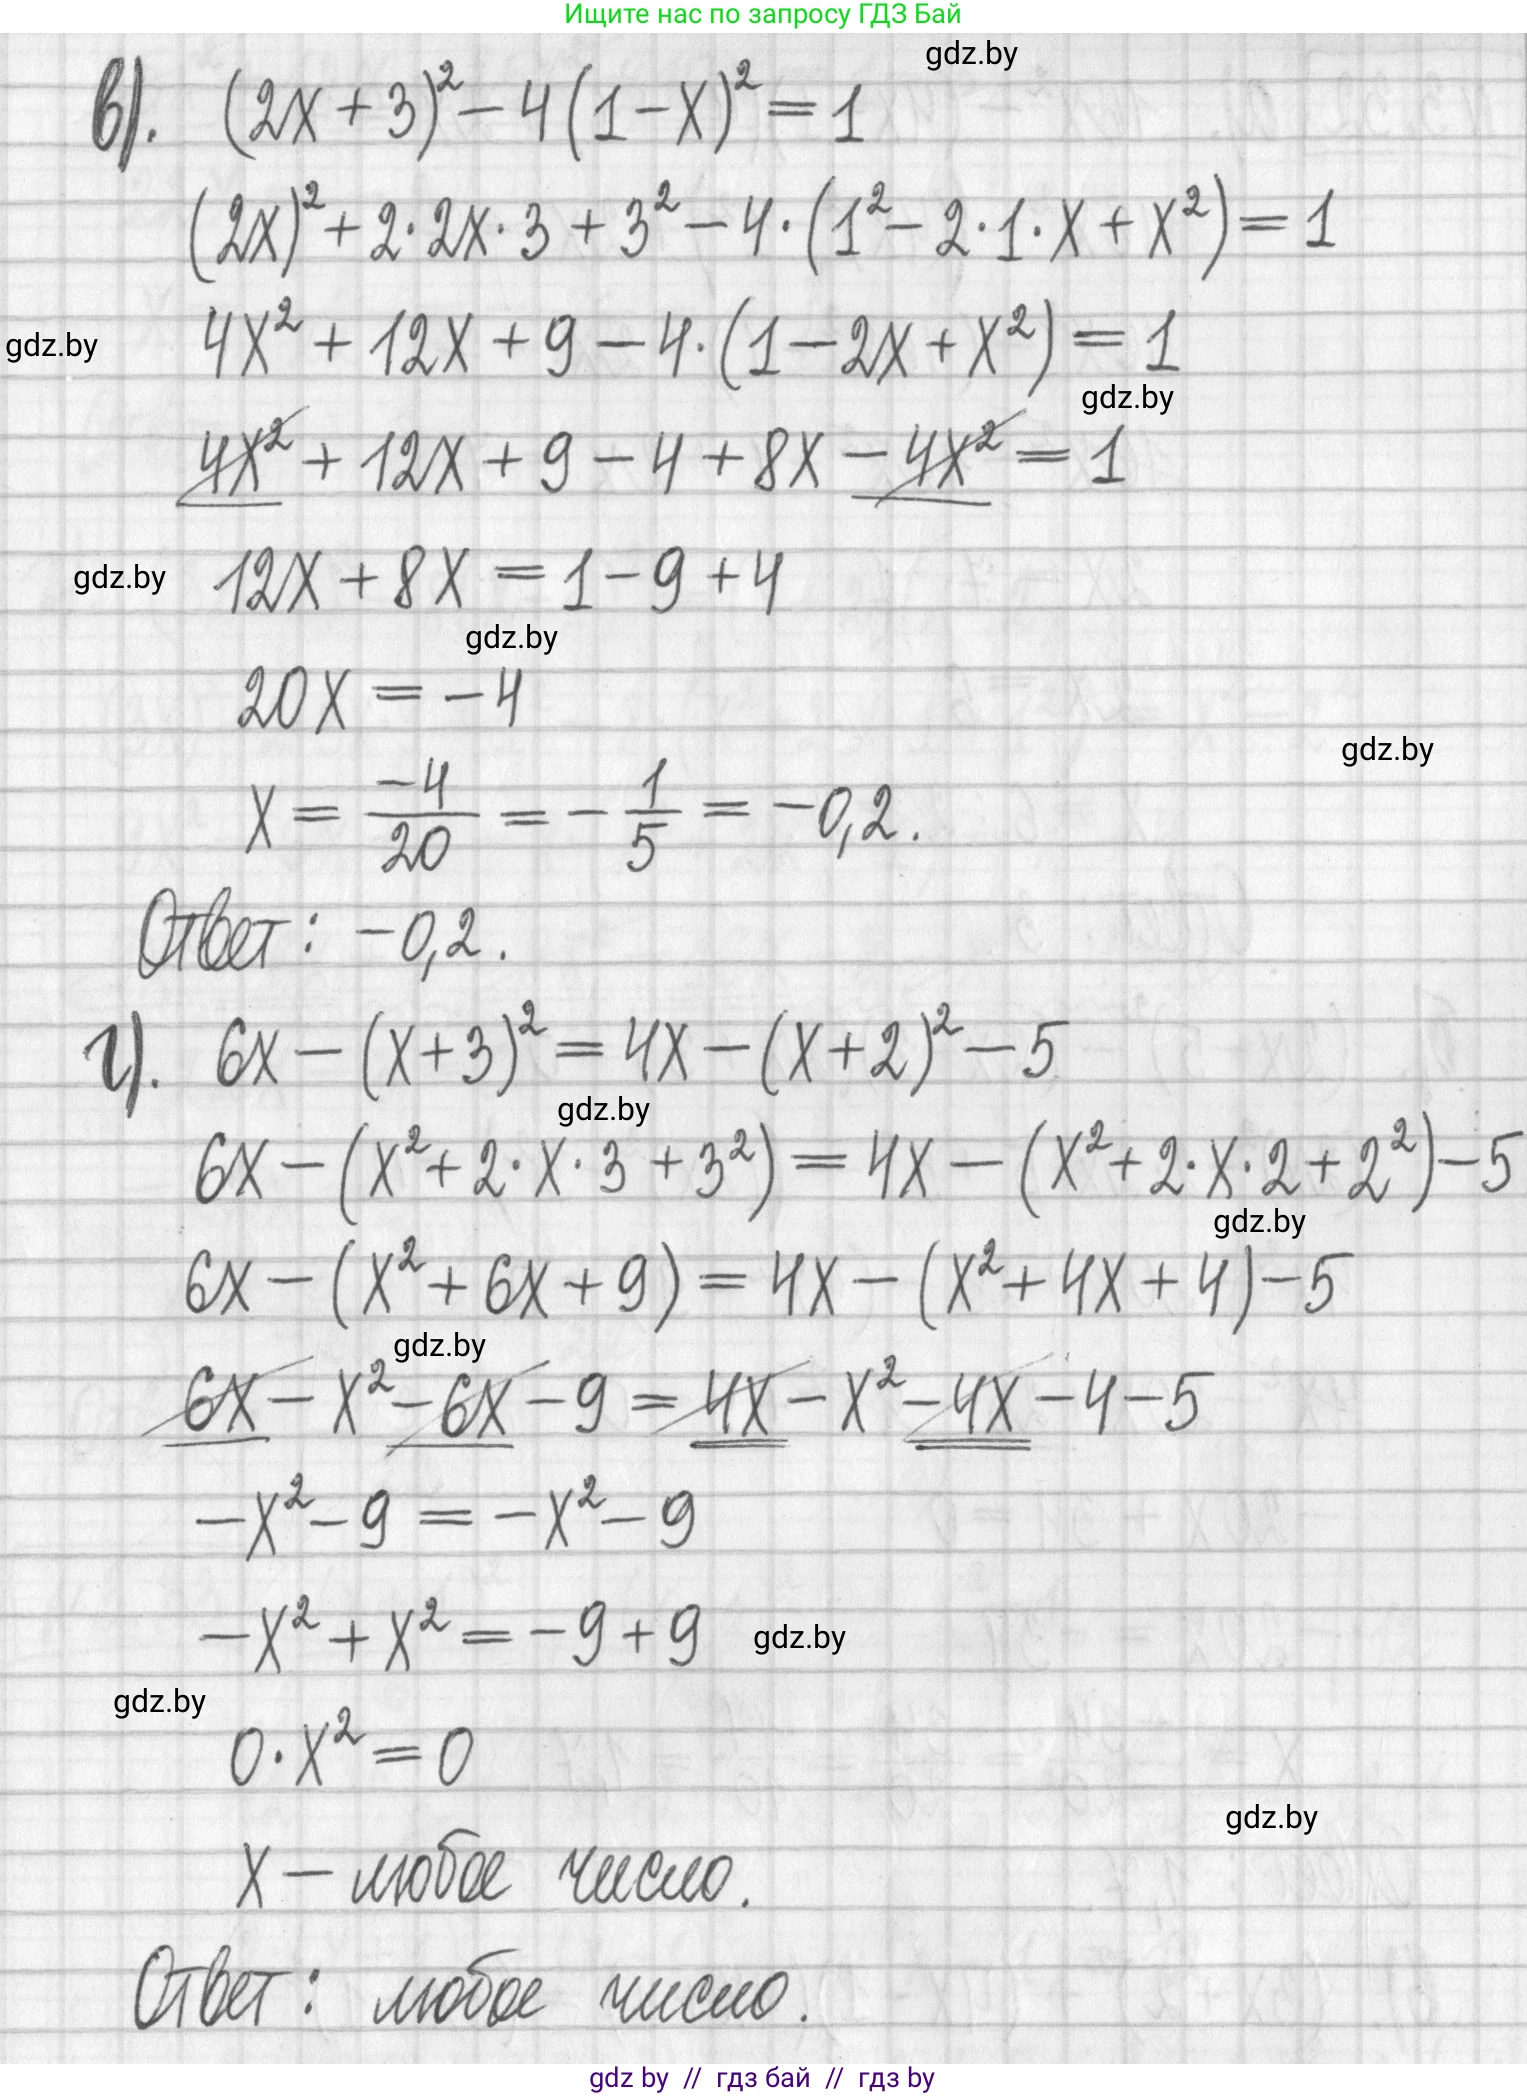 Ищите нас по запросу ГДЗ Бай
gdz.by
в). (2x + 3)² − 4(1 − x)² = 1
(2x)² + 2·2x·3 + 3² − 4·(1² − 2·1·x + x²) = 1
4x² + 12x + 9 − 4·(1 − 2x + x²) = 1
gdz.by
gdz.by
4x² + 12x + 9 − 4 + 8x − 4x² = 1
12x + 8x = 1 − 9 + 4
gdz.by
gdz.by
20x = −4
gdz.by
x = −4/20 = −1/5 = −0,2.
Ответ: −0,2.
г). 6x − (x + 3)² = 4x − (x + 2)² − 5
gdz.by
6x − (x² + 2·x·3 + 3²) = 4x − (x² + 2·x·2 + 2²) − 5
gdz.by
6x − (x² + 6x + 9) = 4x − (x² + 4x + 4) − 5
gdz.by
6x − x² − 6x − 9 = 4x − x² − 4x − 4 − 5
−x² − 9 = −x² − 9
−x² + x² = −9 + 9
gdz.by
gdz.by
0·x² = 0
gdz.by
x − любое число.
Ответ: любое число.
gdz by // гдз бай // гдз by